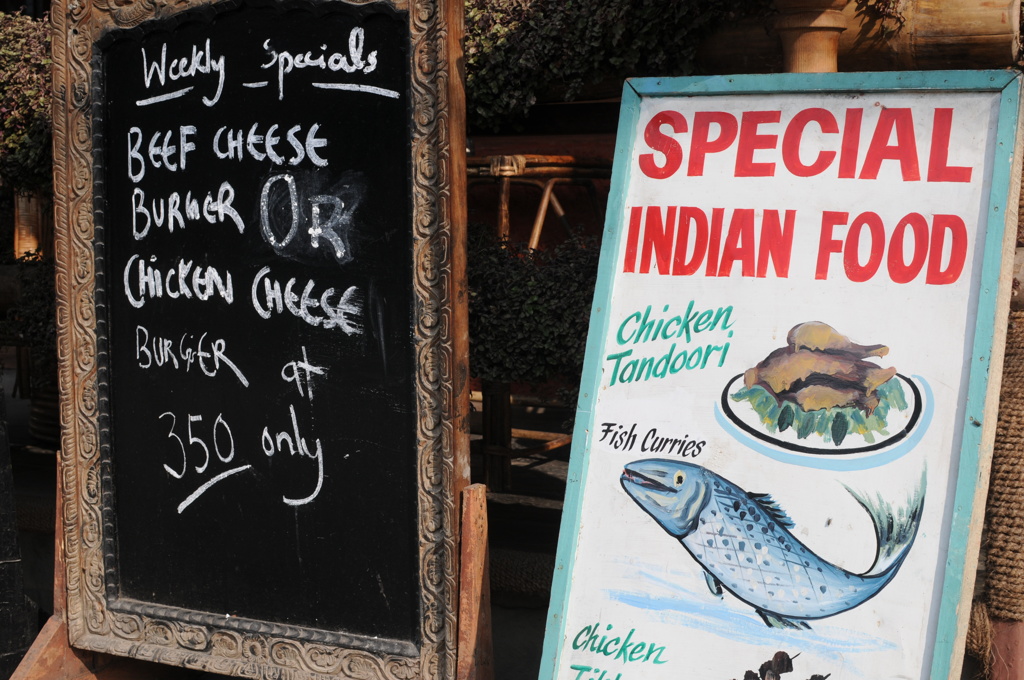 Weekly Specials
BEEF CHEESE
BURGER OR
CHICKEN CHEESE
BURGER at
350 only
SPECIAL
INDIAN FOOD
Chicken
Tandoori
Fish Curries
Chicken